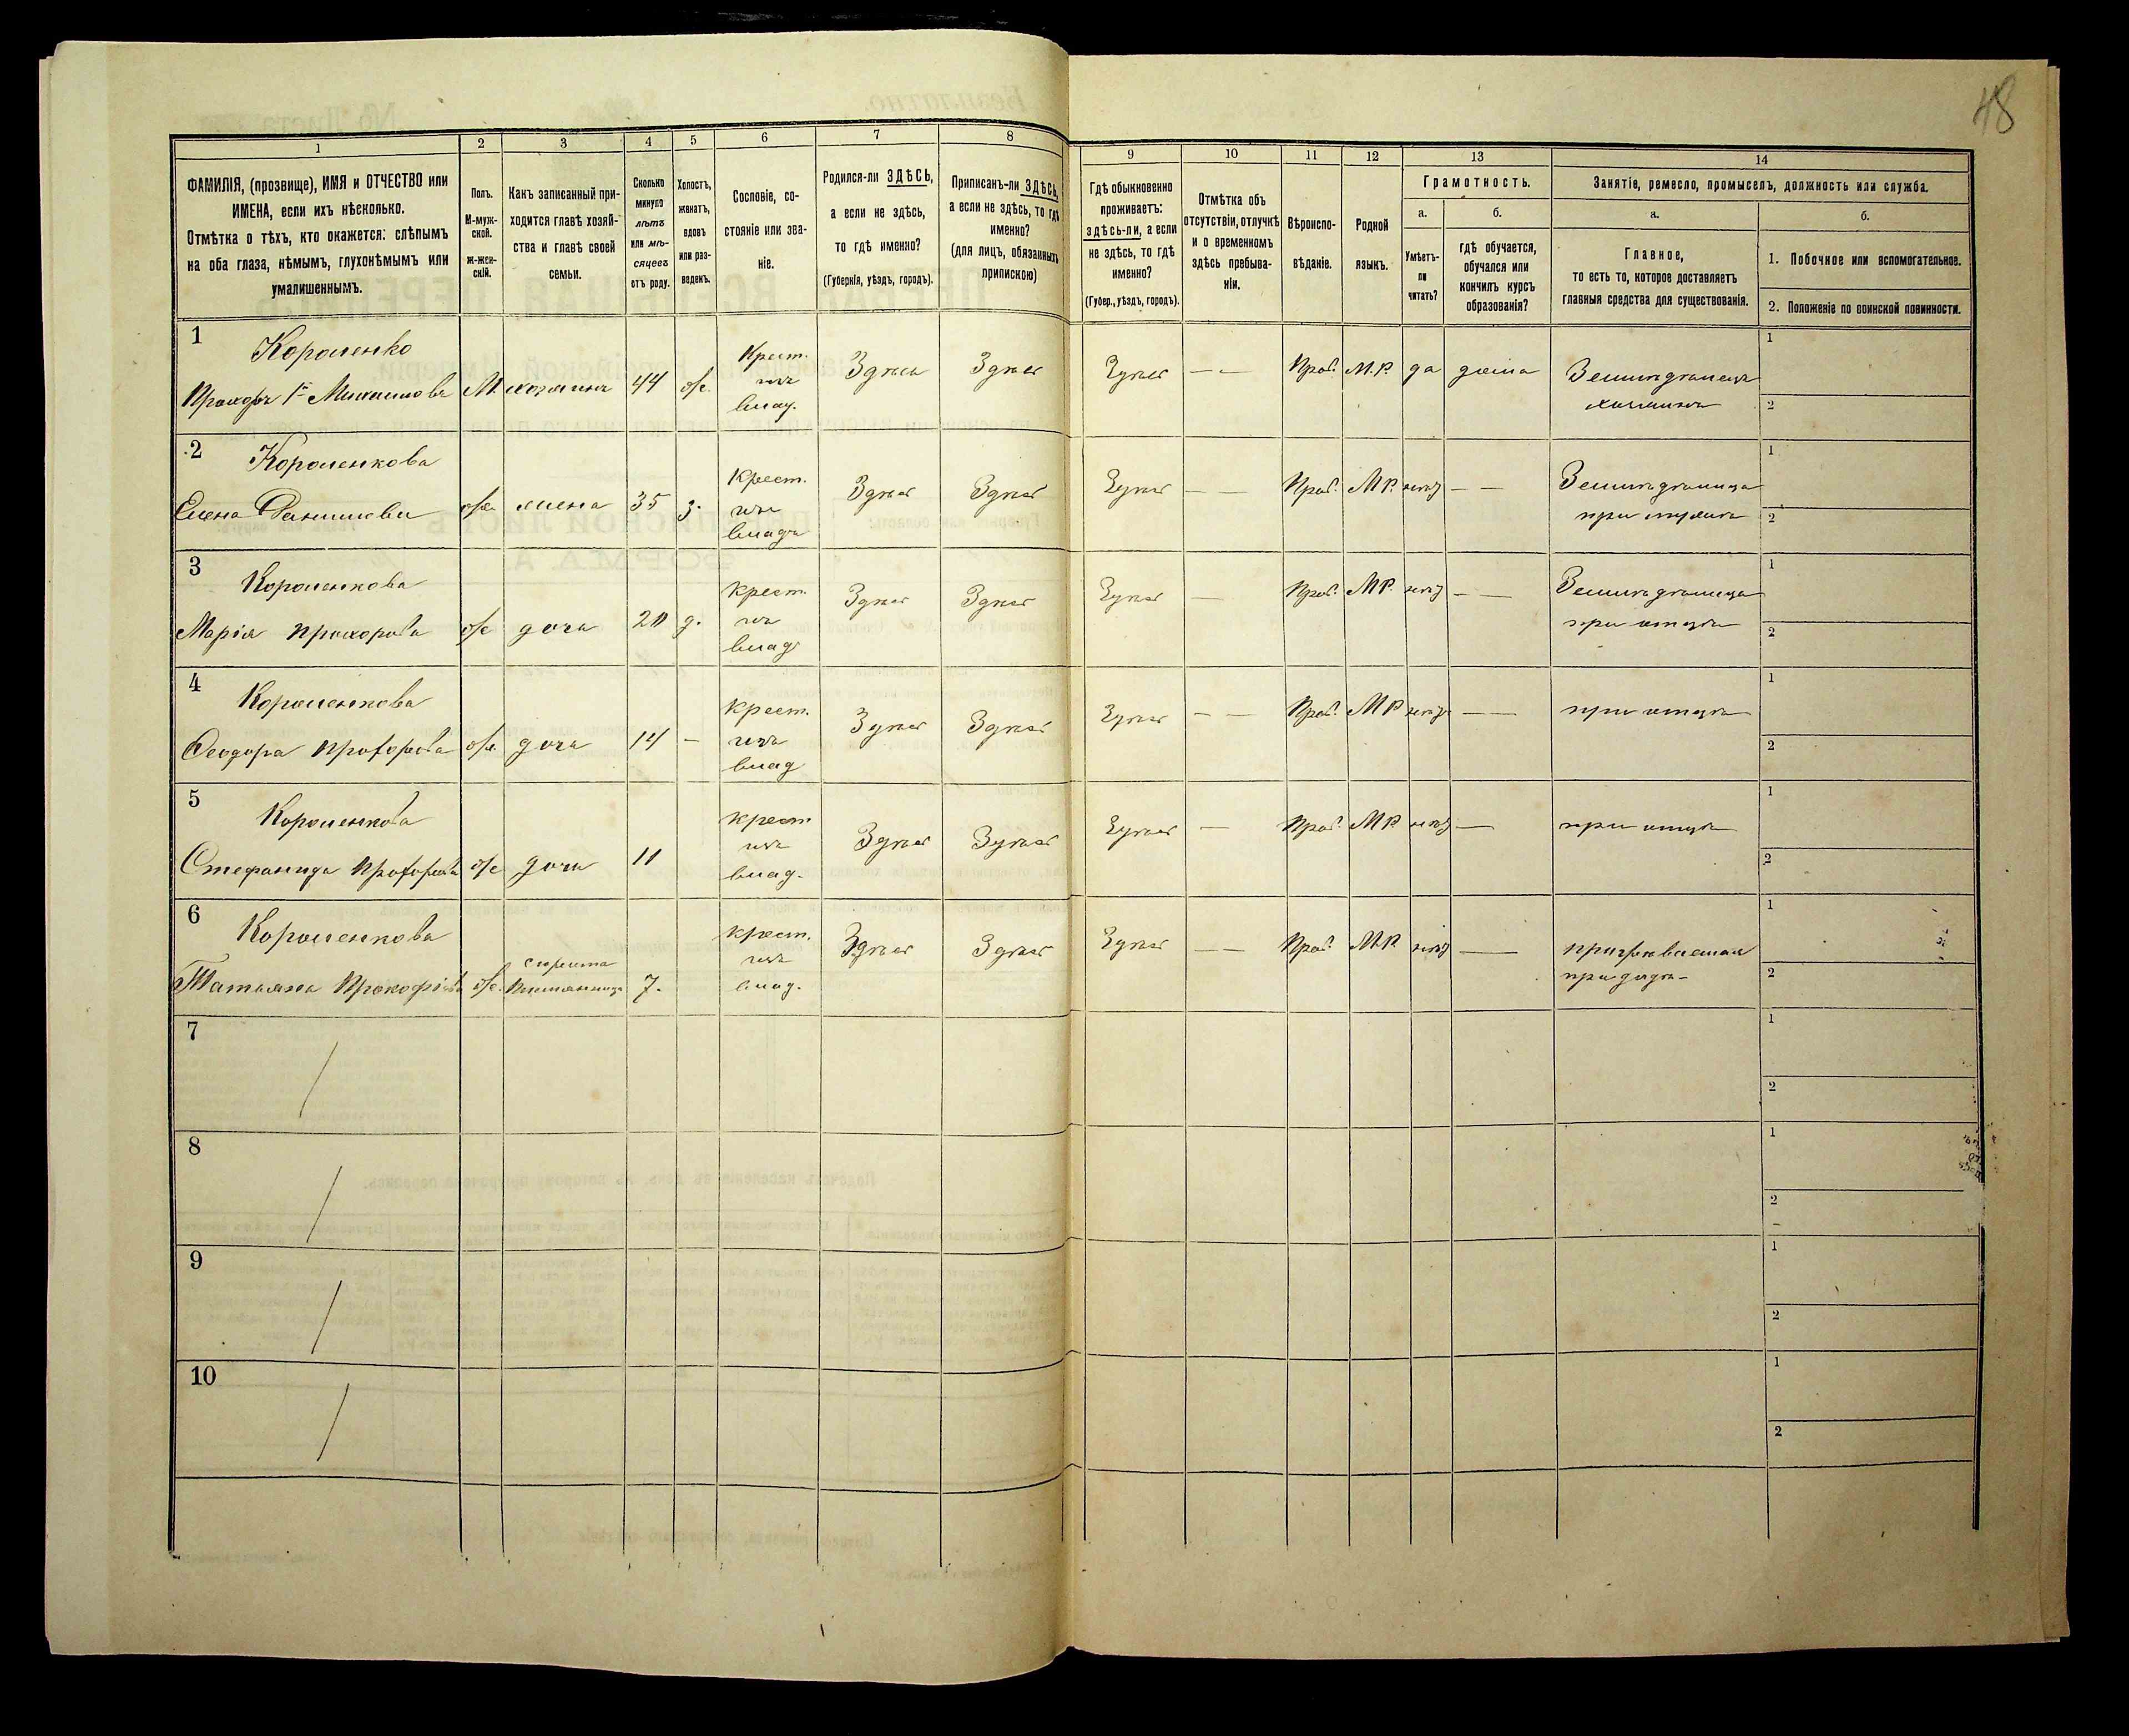 48
1
2
3
4
5
6
7
8
9
10
11
12
13
14
ФАМИЛІЯ, (прозвище), ИМЯ и ОТЧЕСТВО или
ИМЕНА, если ихъ нѣсколько.
Отмѣтка о тѣхъ, кто окажется: слѣпымъ
на оба глаза, нѣмымъ, глухонѣмымъ или
умалишеннымъ.
Полъ.
М-муж-
ской.
ж-жен-
скій.
Какъ записанный при-
ходится главѣ хозяй-
ства и главѣ своей
семьи.
Сколько
минуло
лѣтъ
или мѣ-
сяцевъ
отъ роду.
Холостъ,
женатъ,
вдовъ
или раз-
веденъ.
Сословіе, со-
стояніе или зва-
ніе.
Родился-ли ЗДѢСЬ,
а если не здѣсь,
то гдѣ именно?
(Губернія, уѣздъ, городъ).
Приписанъ-ли ЗДѢСЬ,
а если не здѣсь, то гдѣ
именно?
(для лицъ, обязанныхъ
припискою)
Гдѣ обыкновенно
проживаетъ:
здѣсь-ли, а если
не здѣсь, то гдѣ
именно?
(Губер., уѣздъ, городъ).
Отмѣтка объ
отсутствіи, отлучкѣ
и о временномъ
здѣсь пребыва-
ніи.
Вѣроиспо-
вѣданіе.
Родной
языкъ.
Грамотность.
а.
б.
Умѣетъ-
ли
читать?
гдѣ обучается,
обучался или
кончилъ курсъ
образованія?
Занятіе, ремесло, промыселъ, должность или служба.
а.
б.
Главное,
то есть то, которое доставляетъ
главныя средства для существованія.
1. Побочное или вспомогательное.
2. Положеніе по воинской повинности.
1
Короленко
Прохоръ Михайловъ
М. хозяинъ 44 ж.
Крест.
изъ
влад.
Здѣсь Здѣсь Здѣсь — — Прав. М.Р. да дома
Земледѣлецъ
хозяинъ
1
2
2
Короленкова
Елена Данилова
ж. жена 35 з.
Крест.
изъ
влад.
Здѣсь Здѣсь Здѣсь — — Прав. М.Р. нѣтъ — —
Земледѣлица
при мужѣ
1
2
3
Короленкова
Марія Прохорова
ж дочь 20 д.
Крест.
изъ
влад
Здѣсь Здѣсь Здѣсь — Прав. М.Р. нѣтъ — —
Земледѣлица
при отцѣ
1
2
4
Короленкова
Ѳеодора Прохорова
ж. дочь 14 —
Крест.
изъ
влад
Здѣсь Здѣсь Здѣсь — — Прав. М.Р нѣтъ — —
при отцѣ
1
2
5
Короленкова
Стефанида Прохорова
ж дочь 11
Крест
изъ
влад.
Здѣсь Здѣсь Здѣсь — Прав. М.Р. нѣтъ —
при отцѣ
1
2
6
Короленкова
Татьяна Прокофіева
ж. сирота
племянница 7.
Крест.
изъ
влад.
Здѣсь Здѣсь Здѣсь — — Прав. М.Р. нѣтъ —
призрѣваемая
при дядѣ
1
2
7
1
2
8
1
2
9
1
2
10
1
2